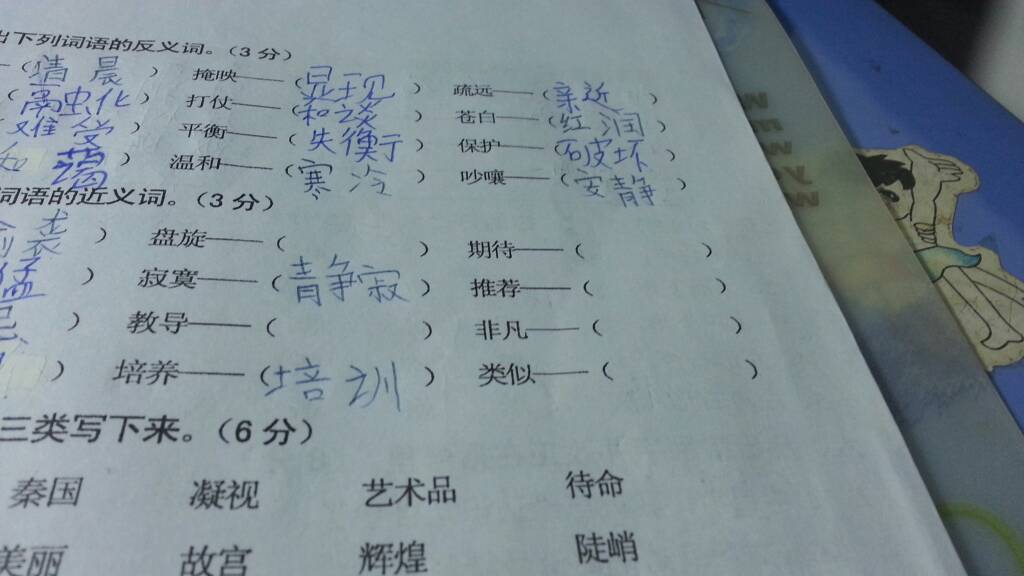 出下列词语的反义词。（3 分）
（清晨） 掩映——（显现） 疏远——（亲近）
（融化） 打仗——（和谈） 苍白——（红润）
（难受） 平衡——（失衡） 保护——（破坏）
） 温和——（寒冷） 吵嚷——（安静）
词语的近义词。（3 分）
） 盘旋——（ ） 期待——（ ）
猛 ） 寂寞——（静寂） 推荐——（ ）
） 教导——（ ） 非凡——（ ）
） 培养——（培训） 类似——（ ）
三类写下来。（6 分）
秦国 凝视 艺术品 待命
美丽 故宫 辉煌 陡峭